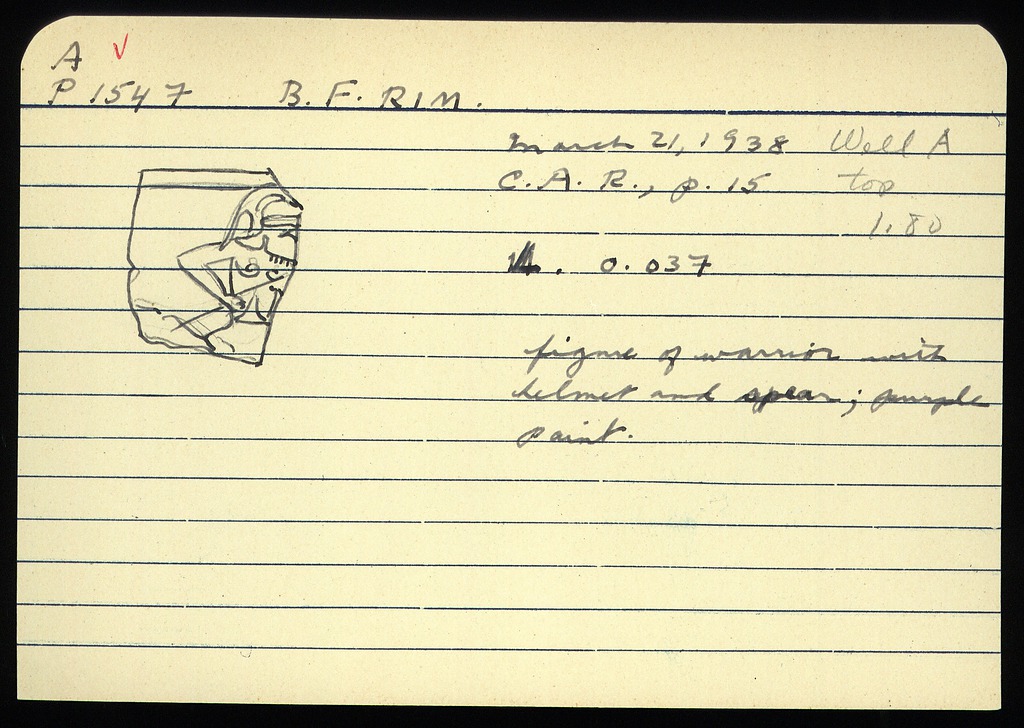 A ✓
P 1547 B. F. RIM.
March 21, 1938 Well A
C. A. R., p. 15 top
1.80
. 0.037
figure of warrior with
helmet and spear; purple
paint.